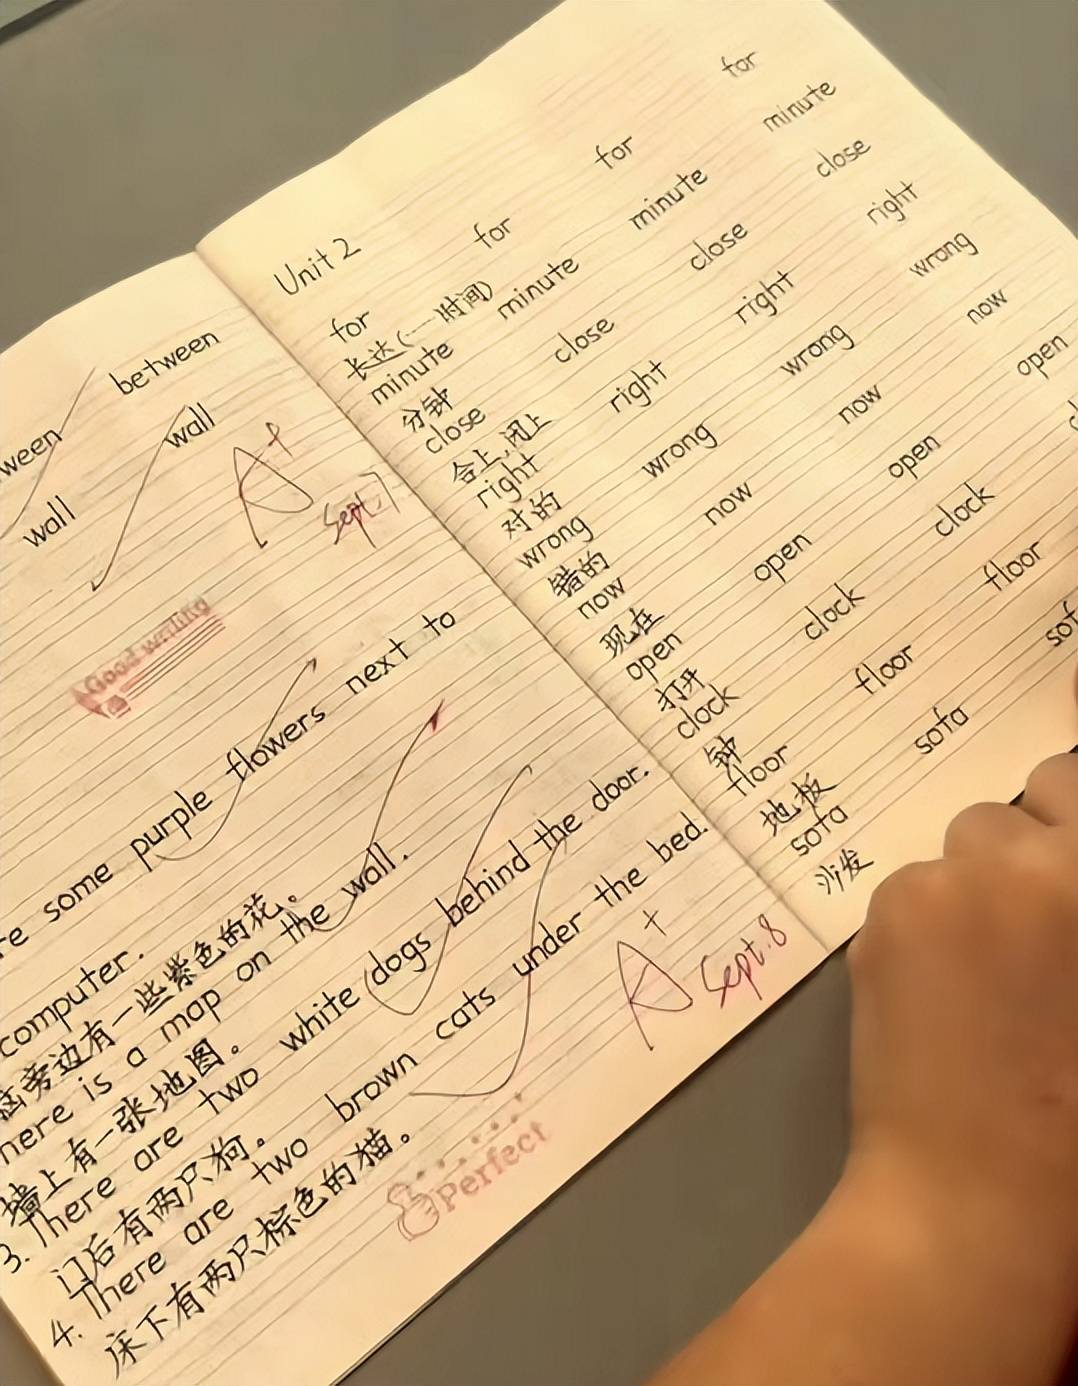 between
wall wall
A+
Sept.7
Good writing
some purple flowers next to
computer.
旁边有一些紫色的花。
is a map on the wall.
墙上有一张地图。
3. There are two white dogs behind the door.
门后有两只狗。
4. There are two brown cats under the bed.
床下有两只棕色的猫。
A+
Sept.8
Perfect
Unit 2
for for for for
长达(一时间)
minute minute minute minute
分钟
close close close close
合上,闭上
right right right right
对的
wrong wrong wrong wrong
错的
now now now now
现在
open open open open
打开
clock clock clock
钟
floor floor floor
地板
sofa sofa
沙发